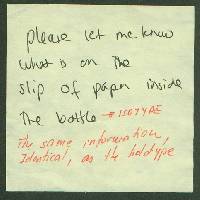 please let me know
what is on the
slip of paper inside
the bottle # ISOTYPE
The same information,
Identical, as the holotype